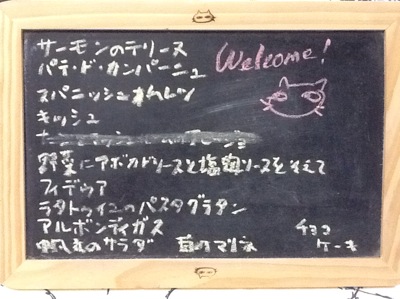 サーモンのテリーヌ
Welcome!
パテ・ド・カンパーニュ
スパニッシュオムレツ
キッシュ
野菜にアボカドソースと塩麹ソースをそえて
フィデウア
ラタトゥイユのパスタグラタン
アルボンディガス
のサラダ
チョコ
ケーキ